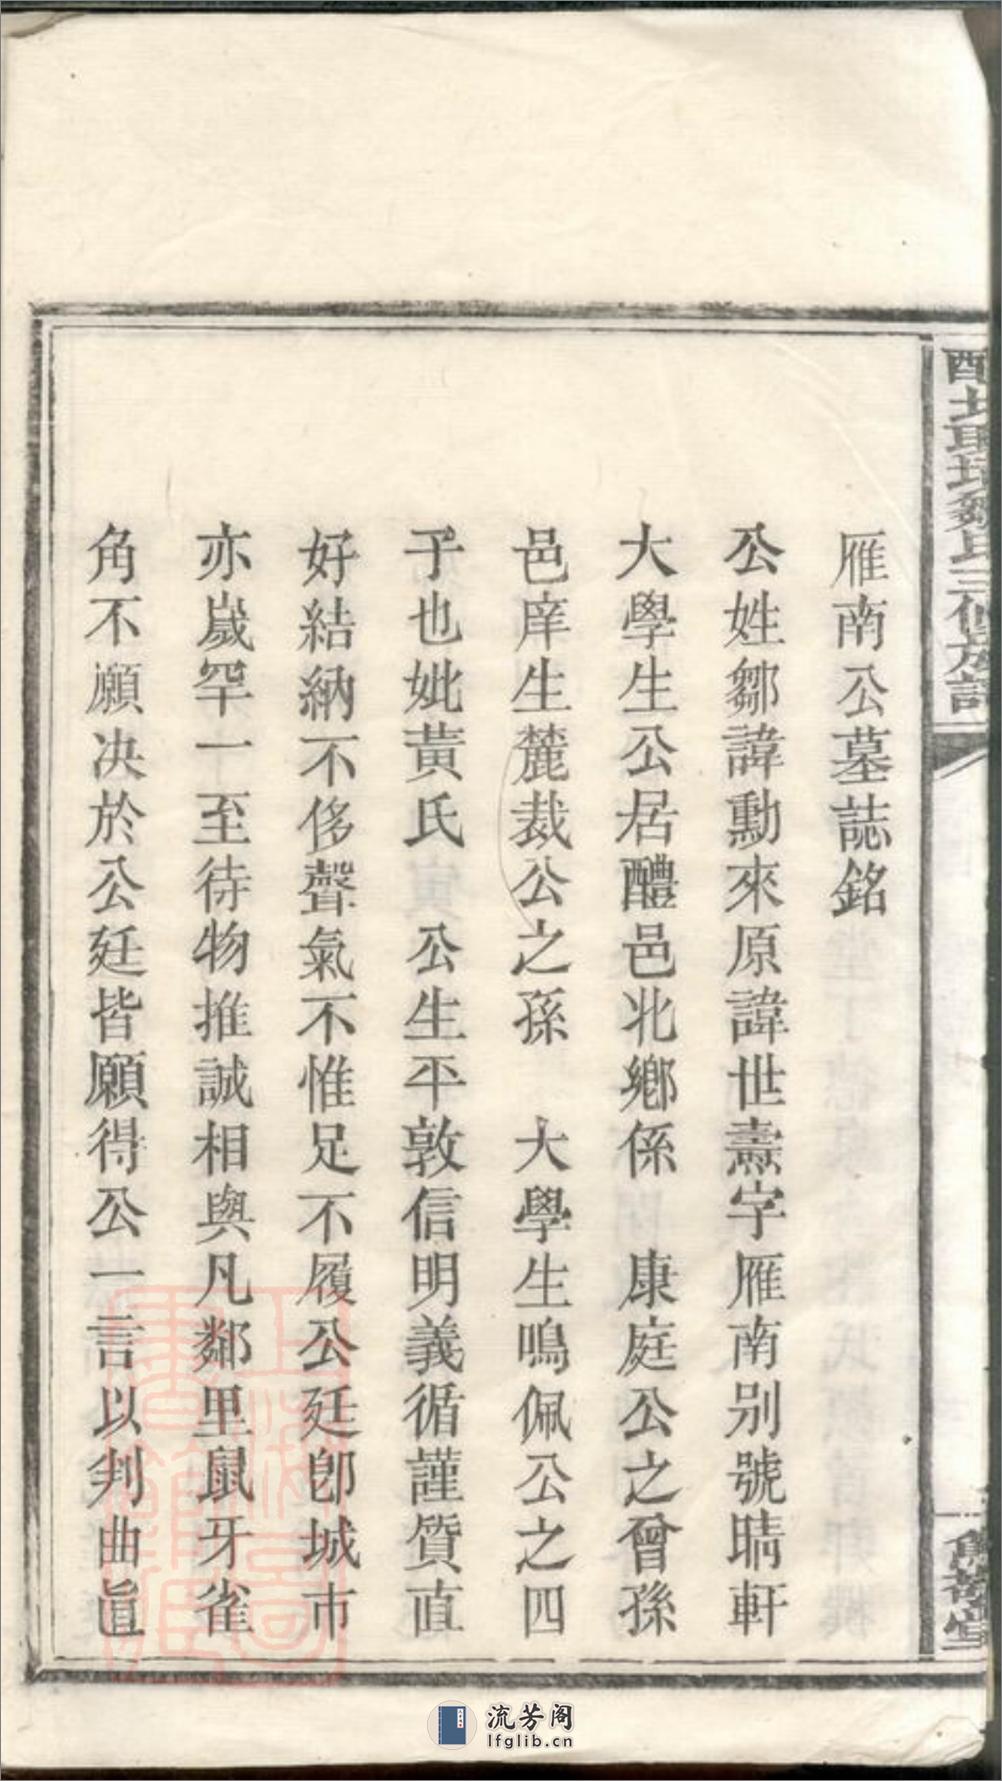 雁南公墓誌銘
公姓鄒諱勳來原諱世燾字雁南别號晴軒
大學生公居醴邑北鄉係　康庭公之曾孫
邑庠生麓裁公之孫　大學生鳴佩公之四
子也妣黃氏　公生平敦信明義循謹質直
好結納不侈聲氣不惟足不履公廷卽城市
亦歲罕一至待物推誠相與凡鄰里鼠牙雀
角不願决於公廷皆願得公一言以判曲直
上海圖書館藏
流芳阁
lfglib.cn